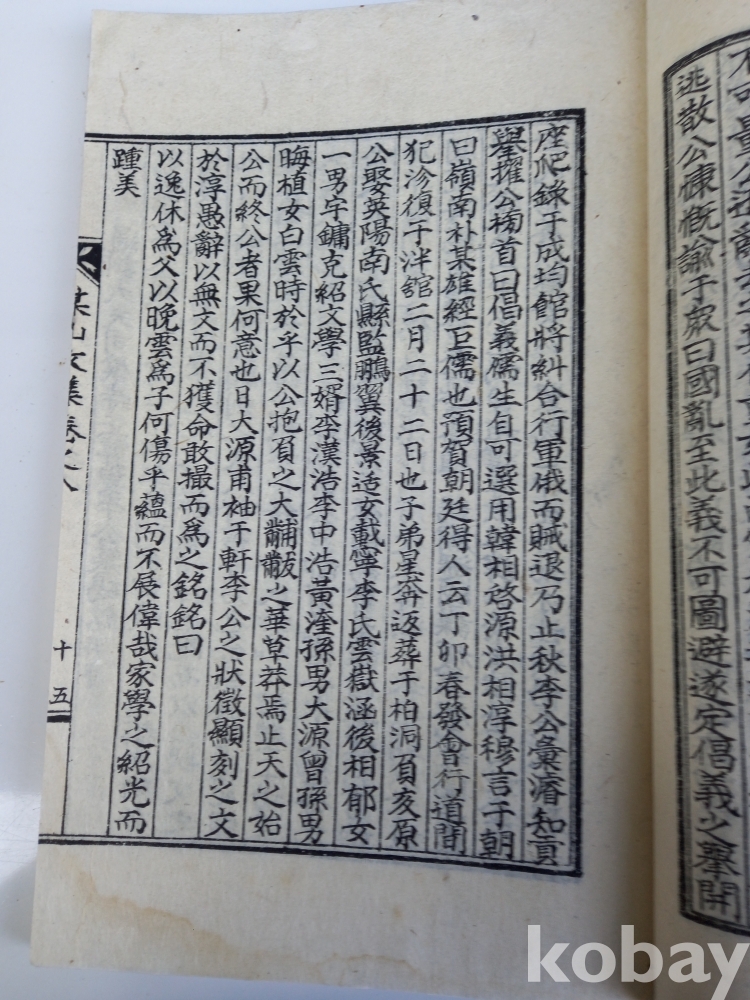 逃散公慷慨諭于衆曰國亂至此義不可圖避遂定倡義之擧開
座爬錄于成均館將糾合行軍俄而賊退乃止秋李公彙濬知貢
擧擢公榜首曰倡義儒生自可選用韓相啓源洪相淳穆言于朝
曰嶺南朴某雄經巨儒也預賀朝廷得人云丁卯春發會行道間
犯沴復于泮館二月二十二日也子弟星奔返葬于柏洞負亥原
公娶英陽南氏縣監鵬翼後景适女載寧李氏雲嶽涵後相郁女
一男宇鏞克紹文學三婿李漢浩李中浩黃瀅孫男大源曾孫男
晦植女白雲時於乎以公抱負之大黼黻之華草莽焉止天之始
公而終公者果何意也日大源甫袖于軒李公之狀徵顯刻之文
於淳愚辭以無文而不獲命敢撮而爲之銘銘曰
以逸休爲父以晩雲爲子何傷乎蘊而不展偉哉家學之紹光而
踵美
文集卷之八
十五
kobay